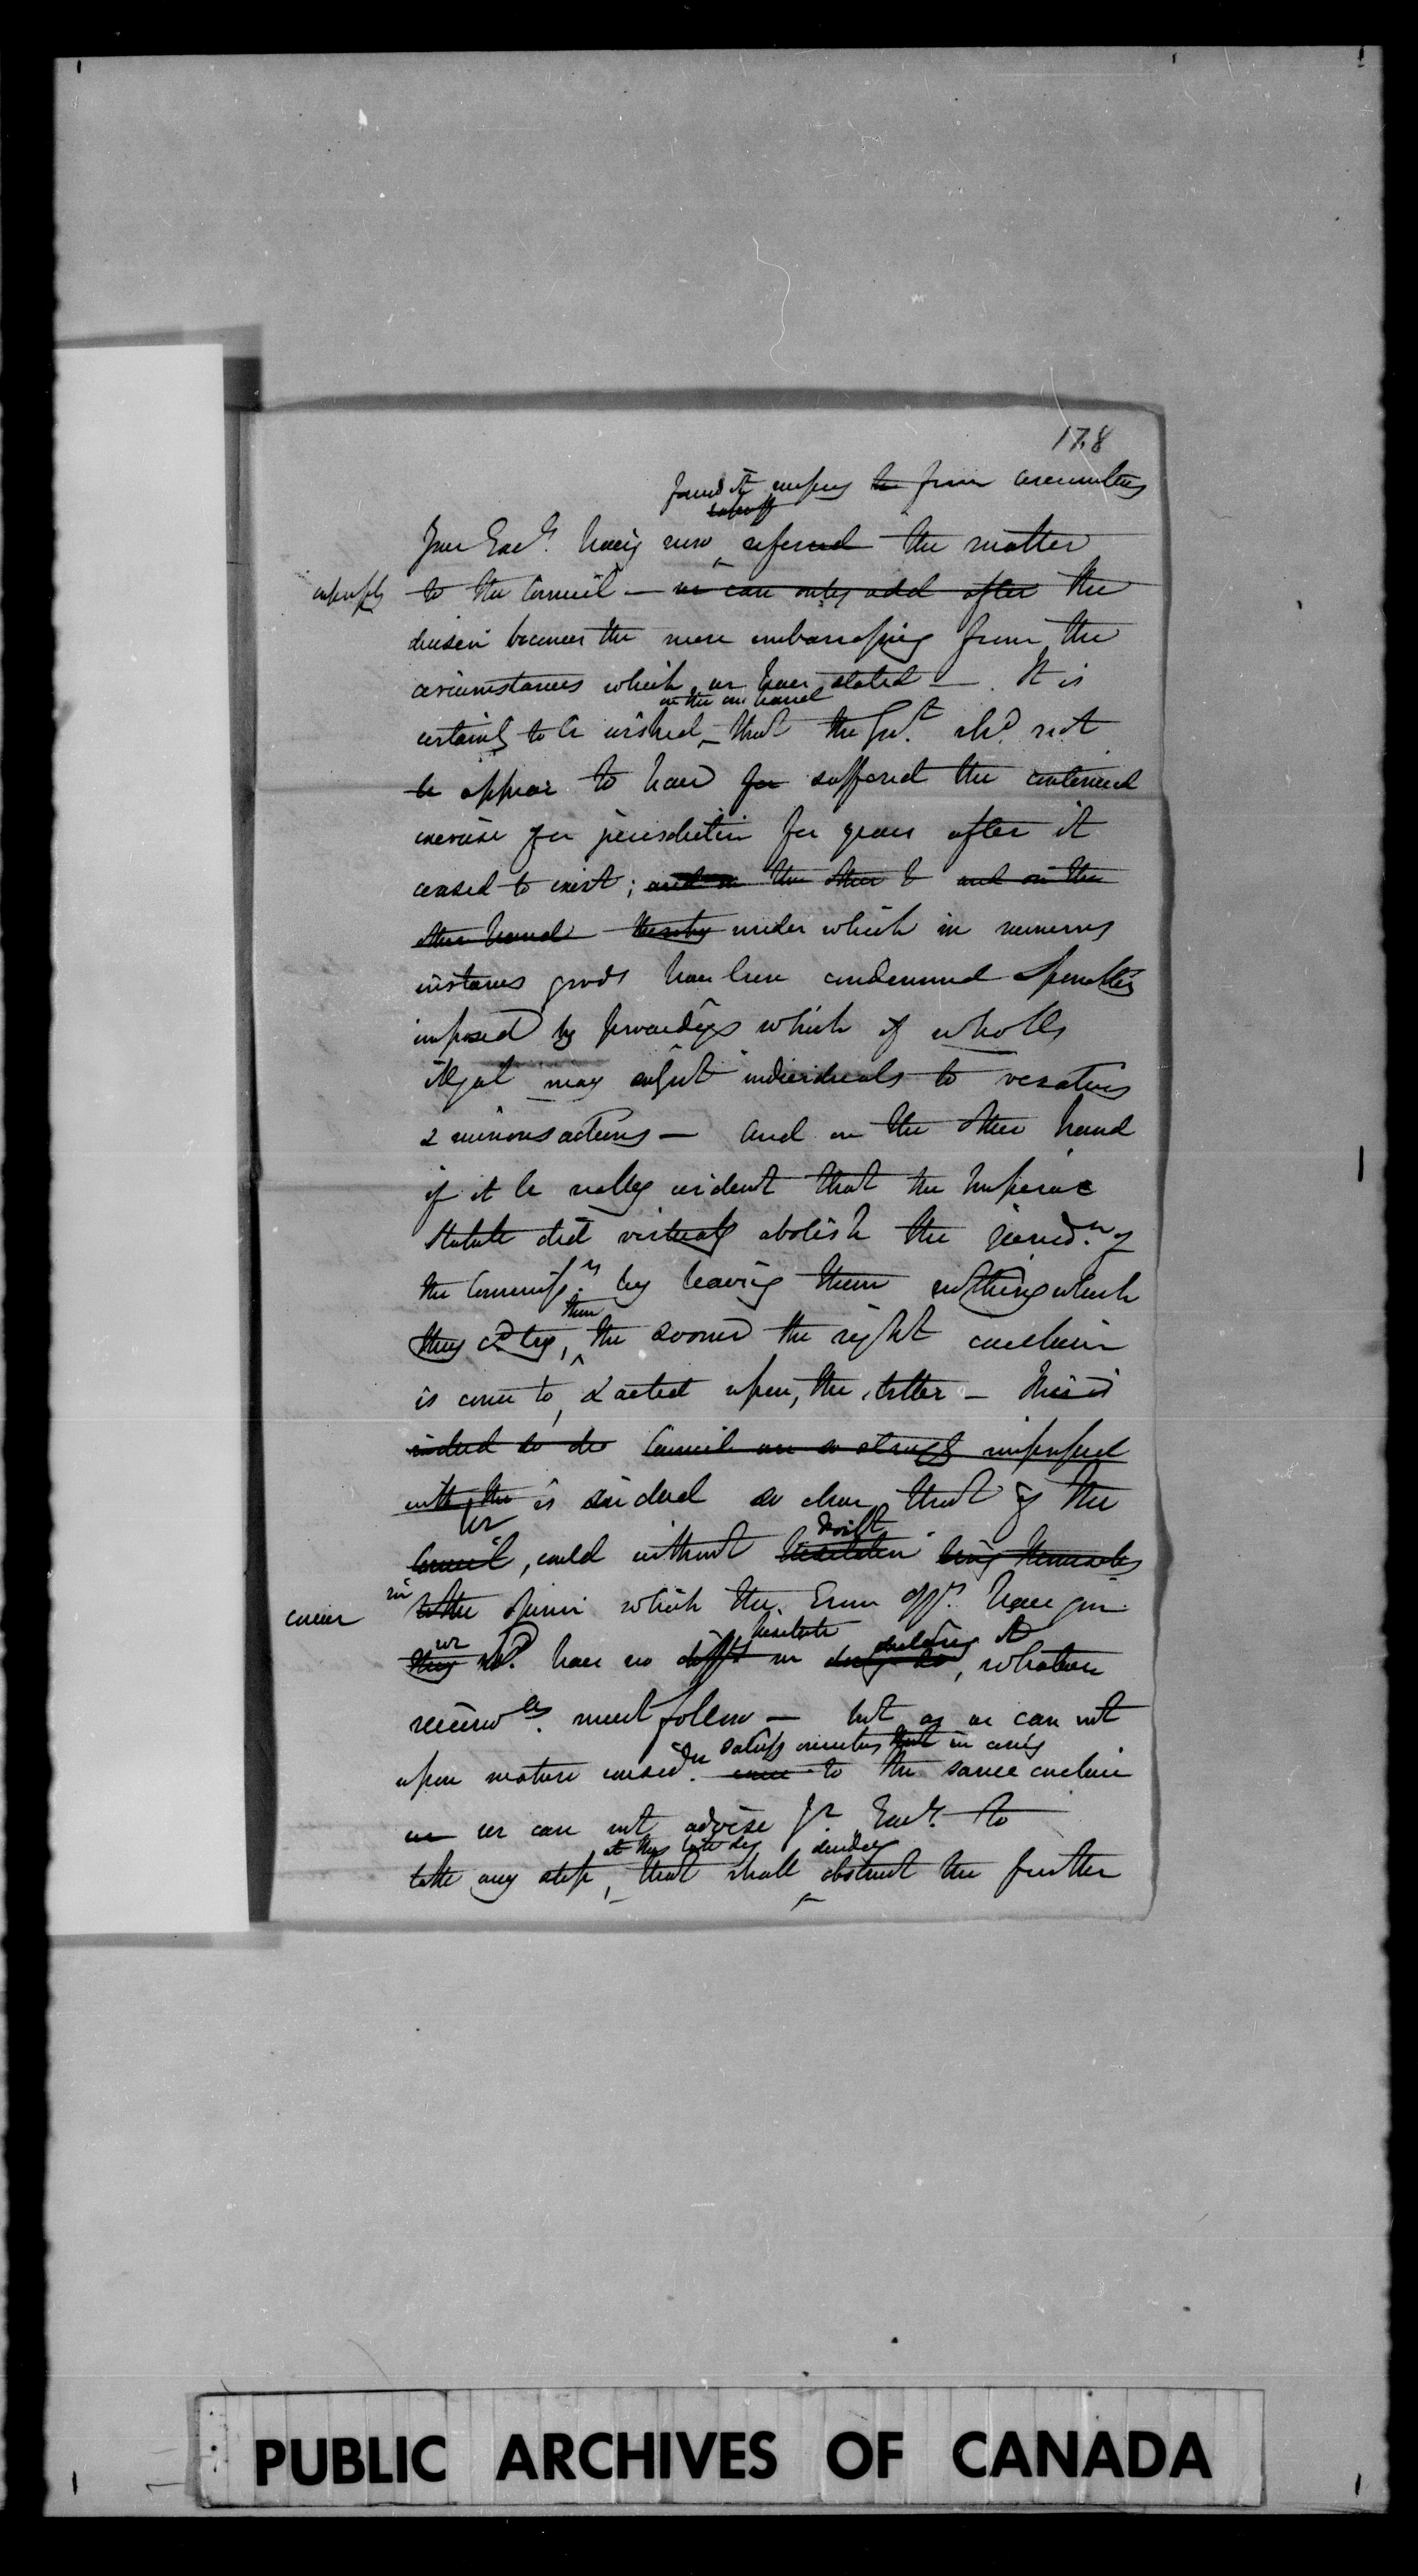 178
found it necessary from circumstances
Your Exc.y having now referred the matter
to the Council — we can only add after the
decision becomes the more embarrassing from the
circumstances which we have stated — It is
on the one hand
certainly to be wished — that the Gov.t sh.d not
be appear to have suffered the continued
exercise of a jurisdiction for years after it
ceased to exist; and on the other and on the
other hand thereby under which in numerous
instances goods have been condemned & penalties
imposed by proceedings which if wholly
illegal may subject individuals to vexatious
& ruinous actions — and on the other hand
if it be really evident that the Imperial
Statute did virtually abolish the jurisd.n of
the Commiss.rs by leaving them nothing which
then
they c.d try, the sooner the right conclusion
is come to, & acted upon, the better — This is
indeed so the Council are so strongly impressed
with the is indeed so clear that if the
we doubt
Council, could without hesitation bring themselves
concur in to the opinion which the Crown Off.rs have given
we hesitate declaring it
they sh.d have no diff.y in doing so, whatever
must follow — but as we can not
satisfy ourselves that in
upon mature consid.n come to the same conclusion
we can not advise Y.r Exc.y to
at this late day
take any step, that shall obstruct the further
PUBLIC ARCHIVES OF CANADA